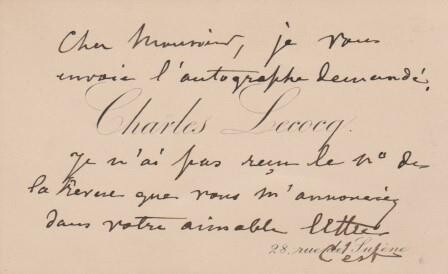 Cher Monsieur, je vous
envoie l'autographe demandé.
Charles Lecocq.
Je n'ai pas reçu le no de
la Revue que vous m'annonciez
dans votre aimable lettre
28, rue de Surène
C'est